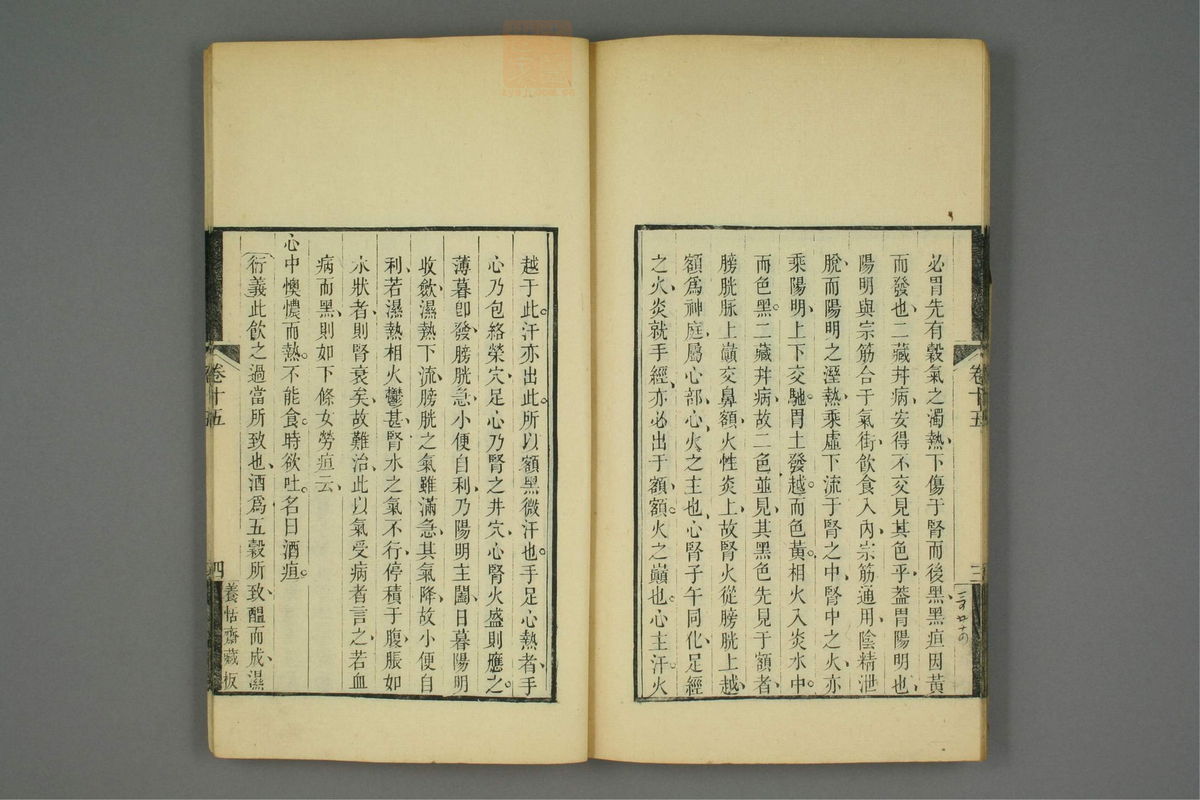 必胃先有穀氣之濁熱下傷于腎而後黑黑疸因黃
而發也二藏并病安得不交見其色乎葢胃陽明也
陽明與宗筋合于氣街飲食入內宗筋通用陰精泄
脫而陽明之溼熱乘虛下流于腎之中腎中之火亦
乘陽明上下交馳胃土發越而色黃相火入炎水中
而色黑二藏并病故二色並見其黑色先見于額者
膀胱脉上巔交鼻額火性炎上故腎火從膀胱上越
額爲神庭屬心部心火之主也心腎子午同化足經
之火炎就手經亦必出于額額火之巔也心主汗火
卷十五
三
越于此汗亦出此所以額黑微汗也手足心熱者手
心乃包絡榮穴足心乃腎之井穴心腎火盛則應之
薄暮卽發膀胱急小便自利乃陽明主闔日暮陽明
收斂濕熱下流膀胱之氣雖滿急其氣降故小便自
利若濕熱相火鬱甚腎水之氣不行停積于腹脹如
水狀者則腎衰矣故難治此以氣受病者言之若血
病而黑則如下條女勞疸云
心中懊憹而熱不能食時欲吐名曰酒疸
衍義此飲之過當所致也酒爲五穀所致醞而成濕
卷十五
四
養恬齋藏板